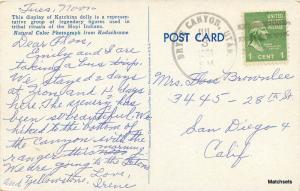 Tues. Noon
This display of Katchina dolls is a representative group of legendary figures used in tribal rituals of the Hopi Indians.
Natural Color Photograph from Kodachrome
Dear Thon,
Emily and I are
taking a bus trip.
We stayed 2 days
at Zion, and 1½ days
here. The scenery has
been so beautiful. We
hiked to the bottom of
the Canyon with the
ranger this morning.
We are going to the Tetons
and Yellowstone. Love,
Irene
POST CARD
BRYCE CANYON, UTAH
1 CENT 1
Mrs. Thon Brownlee
3445 - 28th St
San Diego 4
Calif.
Matchsets